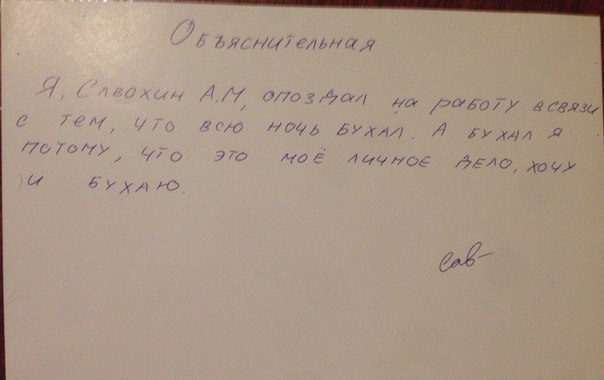 Объяснительная
Я, Савохин А.М, опоздал на работу в связи
с тем, что всю ночь бухал. А бухал я
потому, что это моё личное дело, хочу
и бухаю.
сав